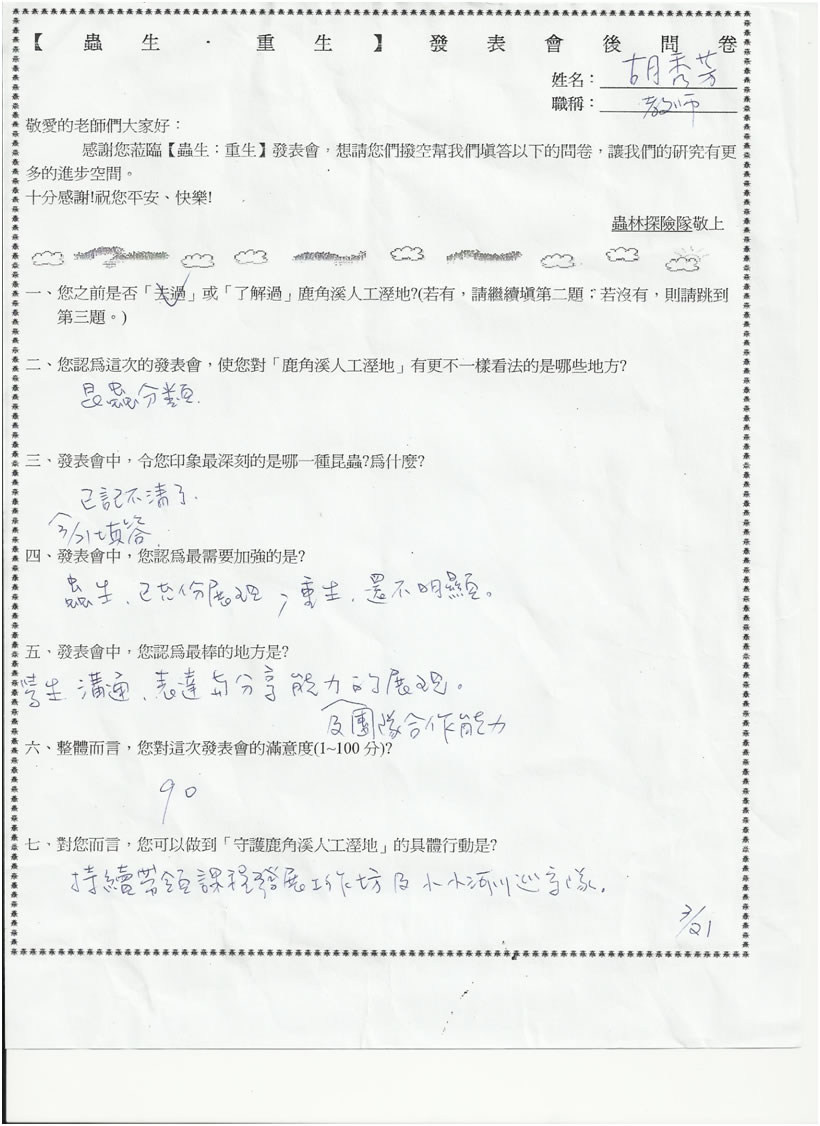 【蟲生．重生】發表會後問卷
姓名：胡秀芳
職稱：教師
敬愛的老師們大家好：
感謝您蒞臨【蟲生：重生】發表會，想請您們撥空幫我們填答以下的問卷，讓我們的研究有更
多的進步空間。
十分感謝!祝您平安、快樂!
蟲林探險隊敬上
一、您之前是否「去過」或「了解過」鹿角溪人工溼地?(若有，請繼續填第二題；若沒有，則請跳到
第三題。)
二、您認為這次的發表會，使您對「鹿角溪人工溼地」有更不一樣看法的是哪些地方?
昆蟲分類.
三、發表會中，令您印象最深刻的是哪一種昆蟲?為什麼?
已記不清了.
3/21填答
四、發表會中，您認為最需要加強的是?
蟲生、已充份展現，重生、還不明顯。
五、發表會中，您認為最棒的地方是?
學生溝通、表達與分享能力的展現。
及團隊合作能力
六、整體而言，您對這次發表會的滿意度(1~100 分)?
90
七、對您而言，您可以做到「守護鹿角溪人工溼地」的具體行動是?
持續帶領課程發展工作坊及小小河川巡守隊.
3/21